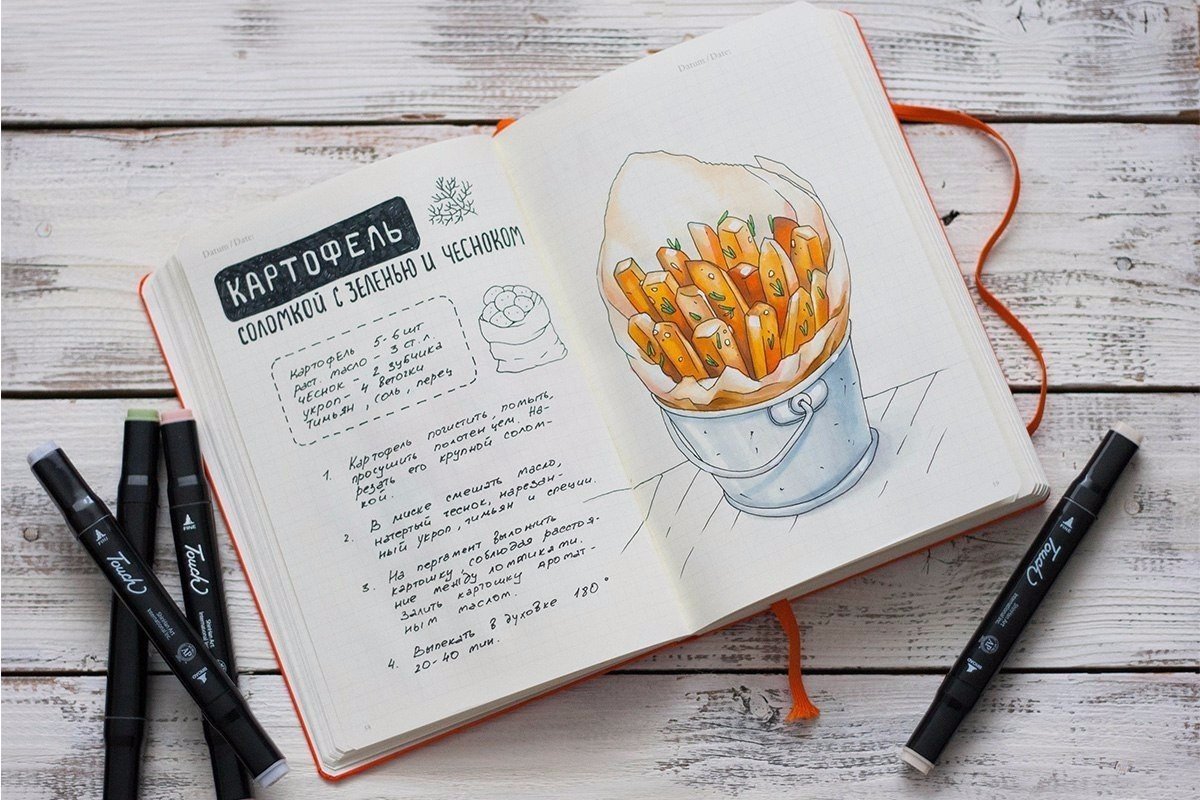 Datum / Date:
КАРТОФЕЛЬ
СОЛОМКОЙ С ЗЕЛЕНЬЮ И ЧЕСНОКОМ
Картофель 5-6 шт
раст. масло - 3 ст. л.
чеснок - 2 зубчика
укроп - 4 веточки
тимьян, соль, перец
1. Картофель почистить, помыть,
просушить полотенцем. На-
резать его крупной солом-
кой.
2. В миске смешать масло,
натертый чеснок, нарезан-
ный укроп, тимьян и специи.
3. На пергамент выложить
картошку, соблюдая расстоя-
ние между ломтиками.
Залить картошку аромат-
ным маслом.
4. Выпекать в духовке 180°
20-40 мин.
Datum / Date:
FINE
Touch
ShinHan Art
International Inc.
AP
BROAD
FINE
Touch
ShinHan Art
International Inc.
FINE
Touch
ShinHan Art
International Inc.
AP
BROAD